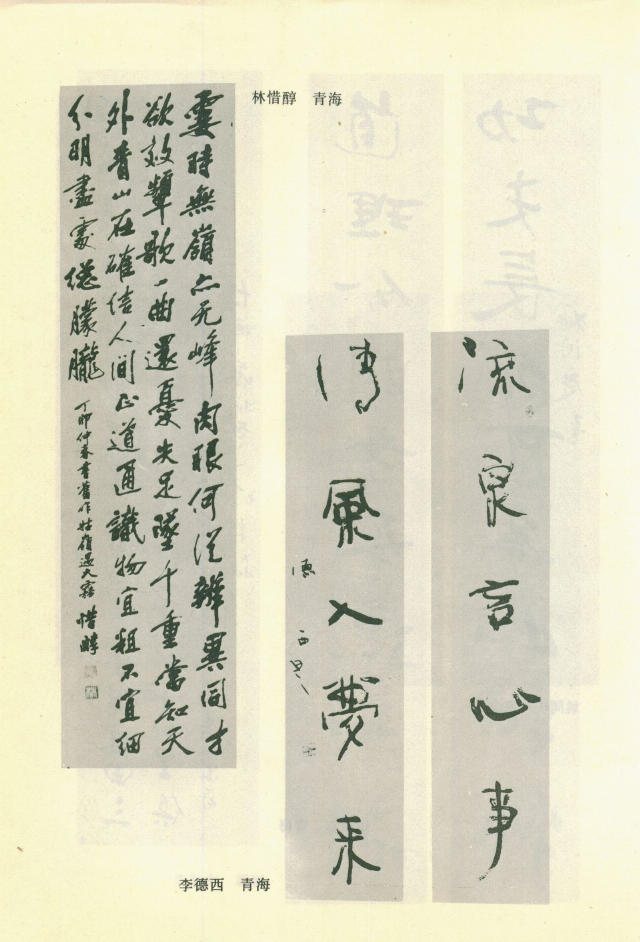 林惜醇 青海
霎時無嶺亦无峰肉眼何從辨異同才
欲效顰歌一曲還憂失足墜千重當知天
外青山在確信人間正道通識物宜粗不宜細
分明盡處總朦朧
丁卯仲春書舊作牯嶺遇大霧 惜醇
流泉言心事
清風入夢来
德西書
李德西 青海